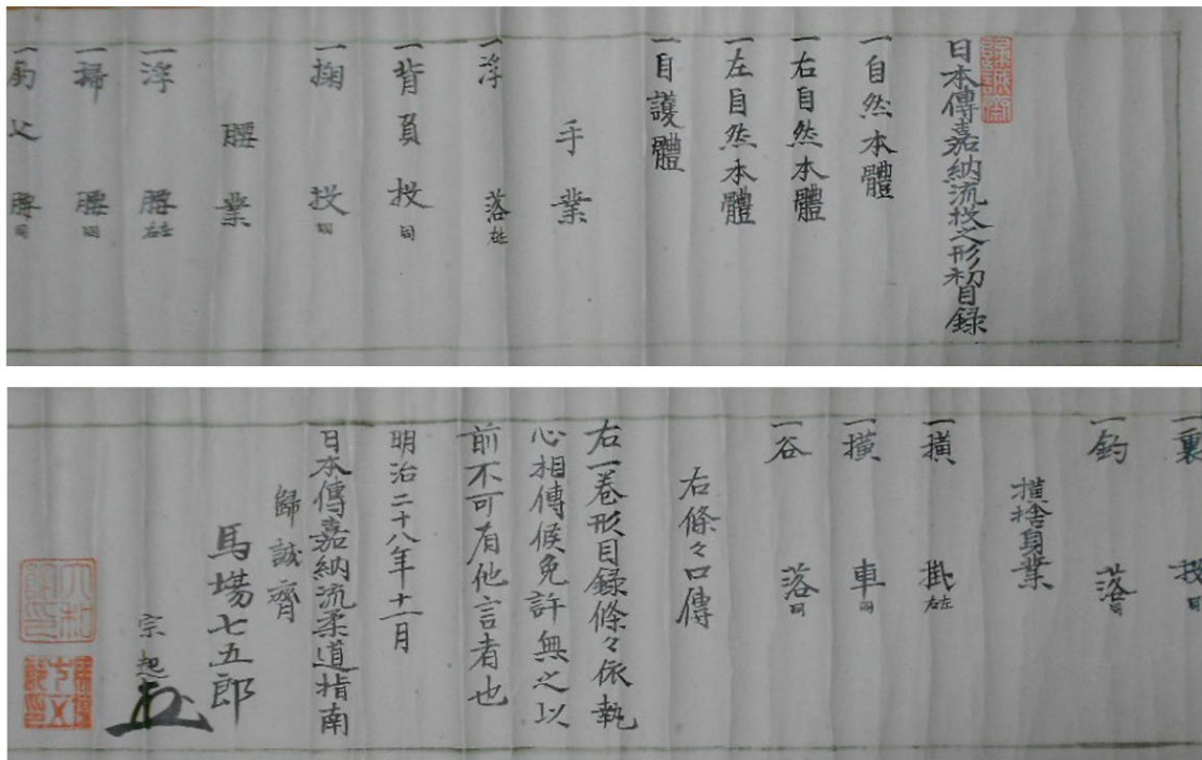 日本傳嘉納流投之形初目録
一自然本體
一右自然本體
一左自然本體
一自護體
手業
一浮落左右
一背負投同
一掬投同
腰業
一浮腰左右
一掃腰同
一釣込腰同
一裏投同
一釣落同
横捨身業
一横掛左右
一横車同
一谷落同
右條々口傳
右一巻形目録條々依執
心相傳候免許無之以
前不可有他言者也
明治二十八年十一月
日本傳嘉納流柔道指南
歸誠齊
馬場七五郎
宗起